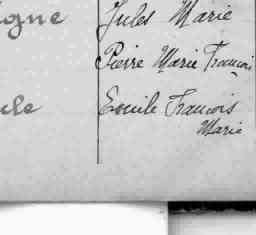 igne Jules Marie
Pierre Marie François
ule Emile François
Marie